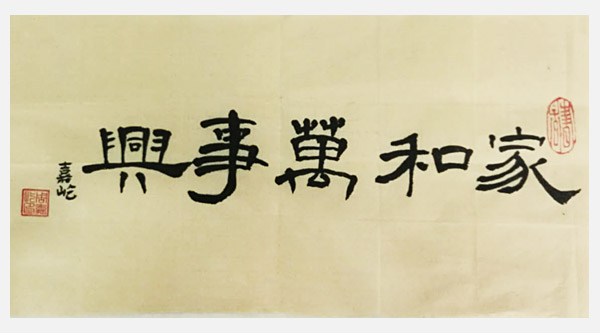 家和萬事興
嘉屹